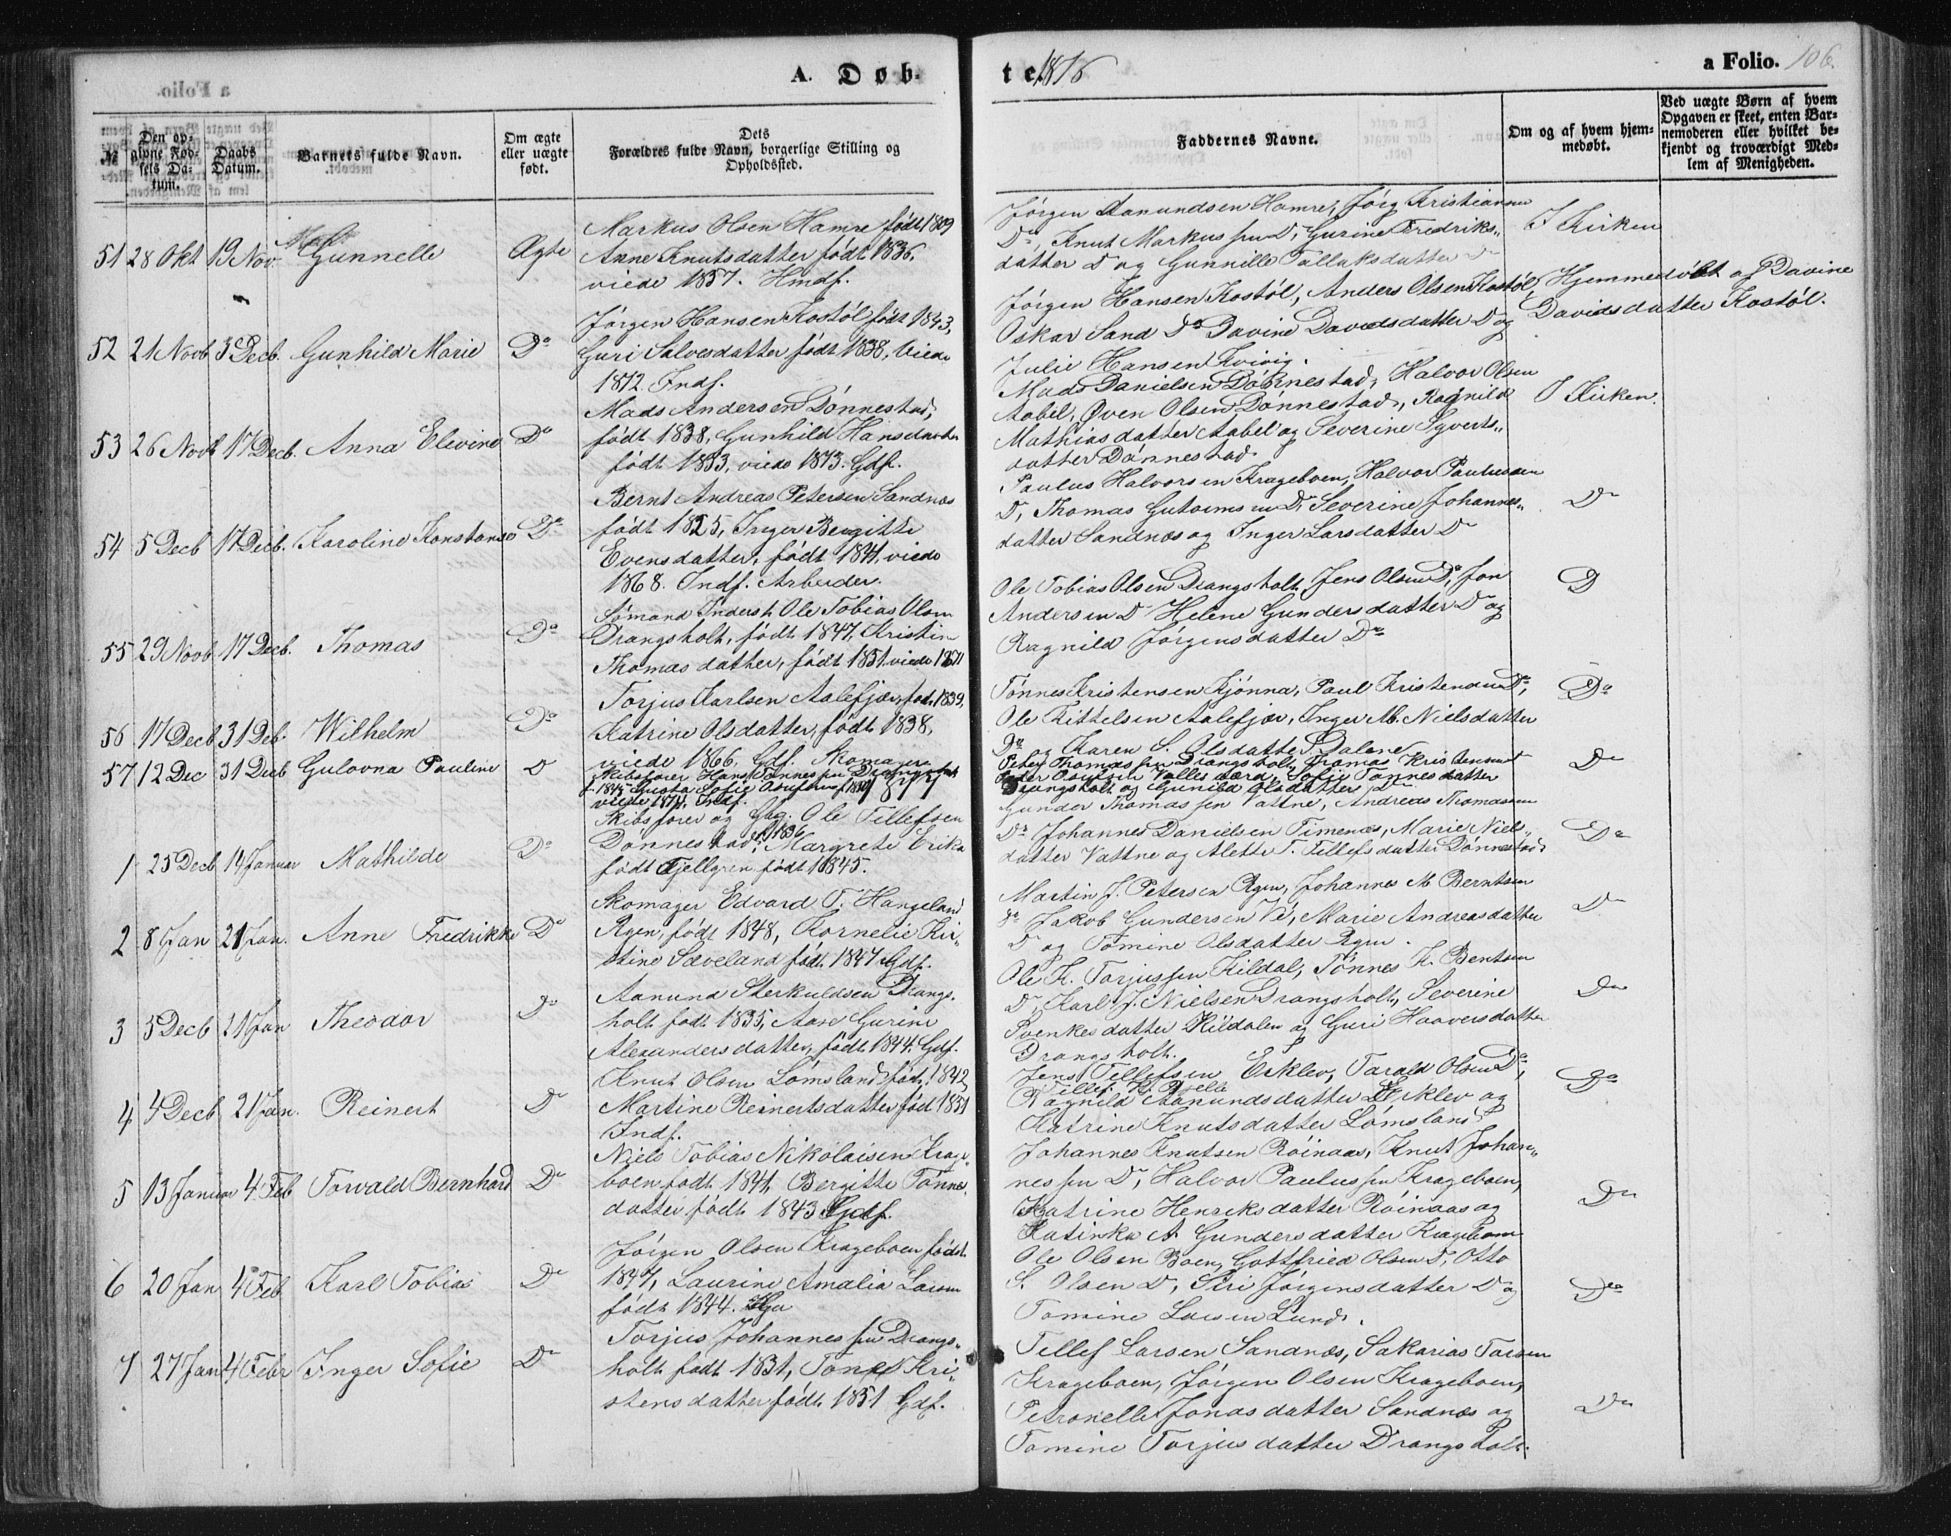 A. Døb-
te 1876
a Folio. 106.
№
Den opgivne Fødsels Datum.
Daabs Datum.
Barnets fulde Navn.
Om ægte eller uægte født.
Dets
Forældres fulde Navn, borgerlige Stilling og Opholdssted.
Faddernes Navne.
Om og af hvem hjemmedøbt.
Ved uægte Børn af hvem Opgaven er skeet, enten Barnemoderen eller hvilket bekjendt og troværdigt Medlem af Menigheden.
51 28 Okt 19 Nov. Gunnelle Ægte
Markus Olsen Hamre født 1809
Anne Knutsdatter født 1836,
viede 1857. Hmdf.
Jørgen Aanundsen Hamre, Jørg Kristiansen
Do, Knut Markussen Do, Gurine Fredriks-
datter Do og Gunnille Tallaksdatter Do
I Kirken
52 21 Novb 3 Decb. Gunhild Marie Do
Jørgen Hansen Kostøl født 1843,
Guri Salvesdatter født 1838, viede
1872 Indf.
Jørgen Hansen Kostøl, Anders Olsen Kostøl,
Oskar Sand Do Davine Davidsdatter Do og
Julie Hansen Kvivig.
Hjemmedøbt af Davine
Davidsdatter Kostøl.
53 26 Novb 17 Decb. Anna Elevine Do
Mads Andersen Dønnestad,
født 1838, Gunhild Hansdatter
født 1853, viede 1873. Gdf.
Mads Danielsen Dønnestad, Halvor Olsen
Aabel, Øven Olsen Dønnestad, Ragnild
Mathiasdatter Aabel og Severine Syverts-
datter Dønnestad.
I Kirken.
54 5 Decb 17 Decb. Karoline Konstanse Do
Bernt Andreas Petersen Sandnæs
født 1825, Inger Bergitte
Evensdatter, født 1841, viede
1868. Indf. Arbeider.
Paulus Halvorsen Krageboen, Halvor Paulussen
Do, Thomas Gutormsen Do Severine Johannes-
datter Sandnæs og Inger Larsdatter Do
Do
55 29 Novb 17 Decb. Thomas Do
Sømand Inderst Ole Tobias Olsen
Drangsholt, født 1847, Kristin
Thomasdatter, født 1851, viede 1871
Ole Tobias Olsen Drangsholt, Jens Olsen Do, Jon
Andersen Do Helene Gundersdatter Do og
Ragnild Jørgensdatter Do
D
56 17 Decb 31 Deb. Wilhelm Do
Torjus Karlsen Aalefjær, født 1839,
Katrine Olsdatter, født 1838,
viede 1866, Gdf. Skomager
Tønnes Kristensen Kjønna, Paul Kristensen Do,
Ole Kittelsen Aalefjær, Inger M. Nielsdatter
Do og Karen S. Olsdatter Dalene
Do
57 12 Dec 31 Decb Gulovna Pauline D
Skibsfører Hans Tønnessen Drangsholt
viede 1874, Indf.
Peter Thomassen Drangsholt, Thomas Kristensen
Vallesværd, Sofie Tønnesdatter
Drangsholt og Gunild Olsdatter Do
Do
1877
1 25 Decb 14 Januar Mathilde Do
Skibsfører og Gaq. Ole Tellefsen
Dønnestad, f. 1836, Margrete Erika
født Fjellgren født 1845.
Gunder Thomassen Vatne, Andreas Thomassen
Do Johannes Danielsen Timenæs, Marie Niels-
datter Vattne og Alette T. Tellefsdatter Dønnestad
Do
2 8 Jan 21 Jan. Anne Fredrikke Do
Skomager Edvard T. Hangeland
Rgen, født 1848, Kornelie Kir-
stine Sæveland født 1847 Gdf.
Martin J. Petersen Rgen, Johannes M. Berntsen
Do Jakob Gundersen Ve, Marie Andreasdatter
Do og Tomine Olsdatter Rgen.
Do
3 5 Decb 21 Jan Theodor Do
Aanund Sterkuldsen Drangs-
holt født 1835, Aase Gurine
Alexandersdatter, født 1844. Gdf.
Ole K. Torjussen Kildal, Tønnes K. Bentsen
Do, Karl J. Nielsen Drangsholt, Severine
Poenkesdatter Kildalen og Guri Haaversdatter
Drangsholt.
Do
4 4 Decb 21 Jan. Reinert Do
Knut Olsen Lømsland født 1842,
Martine Reinertsdatter født 1851
Indf.
Jens Tellefsen Erklev, Tarald Olsen Do,
Ragnild Aanundsdatter Erklev og
Katrine Knutsdatter Lømsland
Do
5 13 Januar 4 Feb Torvald Bernhard Do
Niels Tobias Nikolaisen Krage-
boen født 1841, Bergitte Tønnes-
datter født 1843 Gdf.
Johannes Knutsen Røinaas, Knut Johan-
nessen Do, Halvor Paulussen Krageboen,
Katrine Henriksdatter Røinaas og
Katinka A Gundersdatter Krageboen
Do
6 20 Jan 4 Feb Karl Tobias Do
Jørgen Olsen Krageboen født
1847, Laurine Amalia Larsen
født 1844.
Ole Olsen Boen, Gottfried Olsen Do, Otto
S. Olsen Do, Siri Jørgensdatter Do og
Tomine Larsen Lund.
Do
7 27 Jan 4 Febr Inger Sofie Do
Torjus Johannessen Drangs-
holt født 1831, Tone Kri-
stensdatter født 1851 Gdf.
Tellef Larsen Sandnæs, Sakarias Larsen
Krageboen, Jørgen Olsen Krageboen,
Petronelle Jonasdatter Sandnæs og
Tomine Torjusdatter Drangsholt.
Do